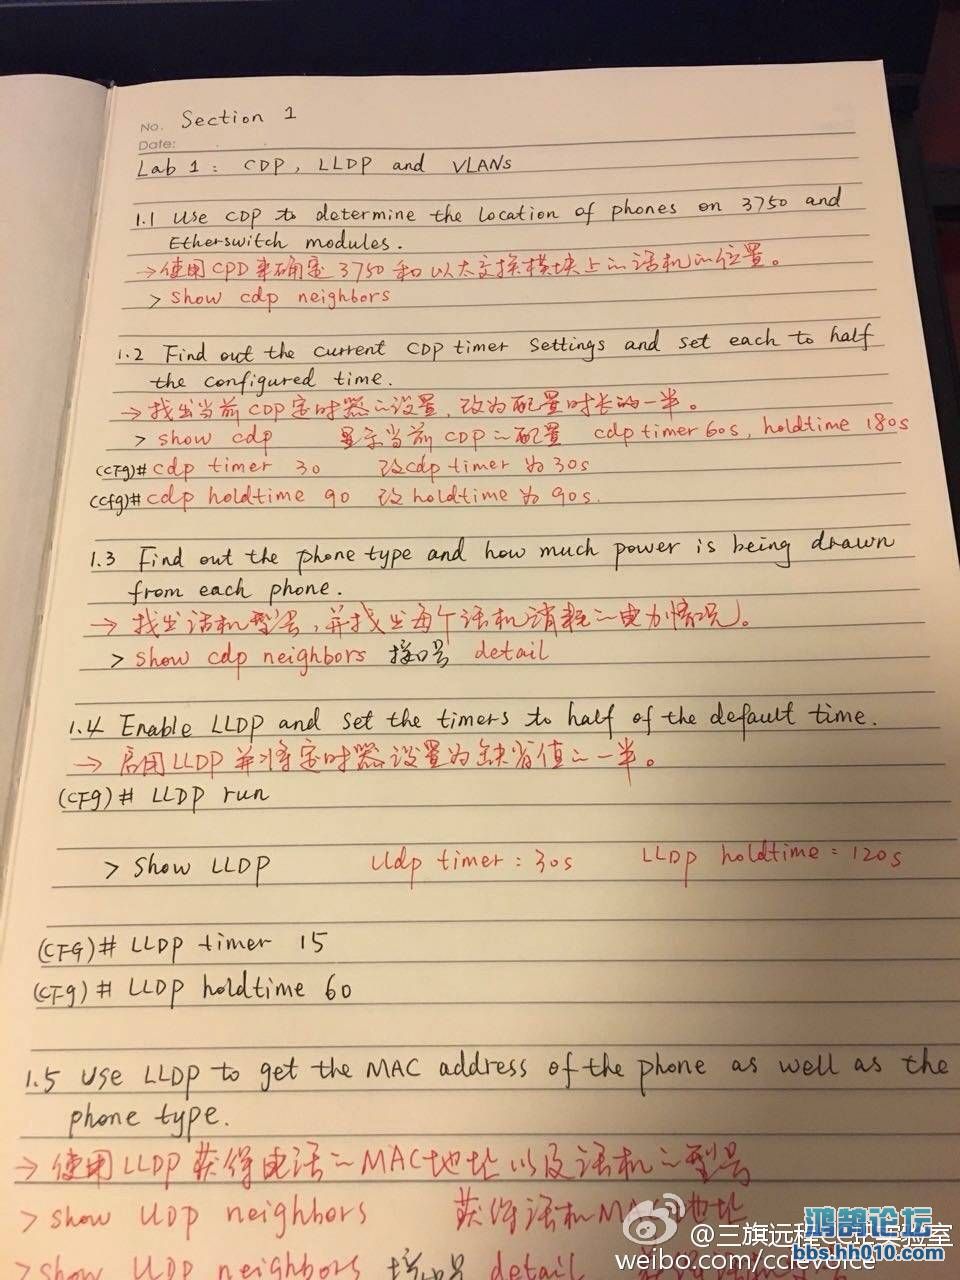 No. Section 1
Date:
Lab 1: CDP, LLDP and VLANs
1.1 Use CDP to determine the location of phones on 3750 and
Etherswitch modules.
→使用CPD来确定3750和以太交换模块上の话机の位置。
> show cdp neighbors
1.2 Find out the current CDP timer settings and set each to half
the configured time.
→找出当前CDP定时器の设置,改为配置时长的一半。
> show cdp 显示当前CDPの配置 cdp timer 60s, holdtime 180s
(CFg)# cdp timer 30 改cdp timer为30s
(cfg)# cdp holdtime 90 改holdtime为90s.
1.3 Find out the phone type and how much power is being drawn
from each phone.
→找出话机型号,并找出每个话机消耗の电力情况。
> show cdp neighbors 接口号 detail
1.4 Enable LLDP and set the timers to half of the default time.
→启用LLDP并将定时器设置为缺省值の一半。
(CFg)# LLDP run
> Show LLDP Lldp timer: 30s LLDP holdtime: 120s
(CFG)# LLDP timer 15
(CFg)# LLDP holdtime 60
1.5 Use LLDP to get the MAC address of the phone as well as the
phone type.
→使用LLDP获得电话のMAC地址以及话机の型号
> show LLDP neighbors 获得话机MAC地址
> show LLDP neighbors 接口号 detail
@三旗远程CCIE实验室
weibo.com/ccievoice
鸿鹄论坛
bbs.hh010.com